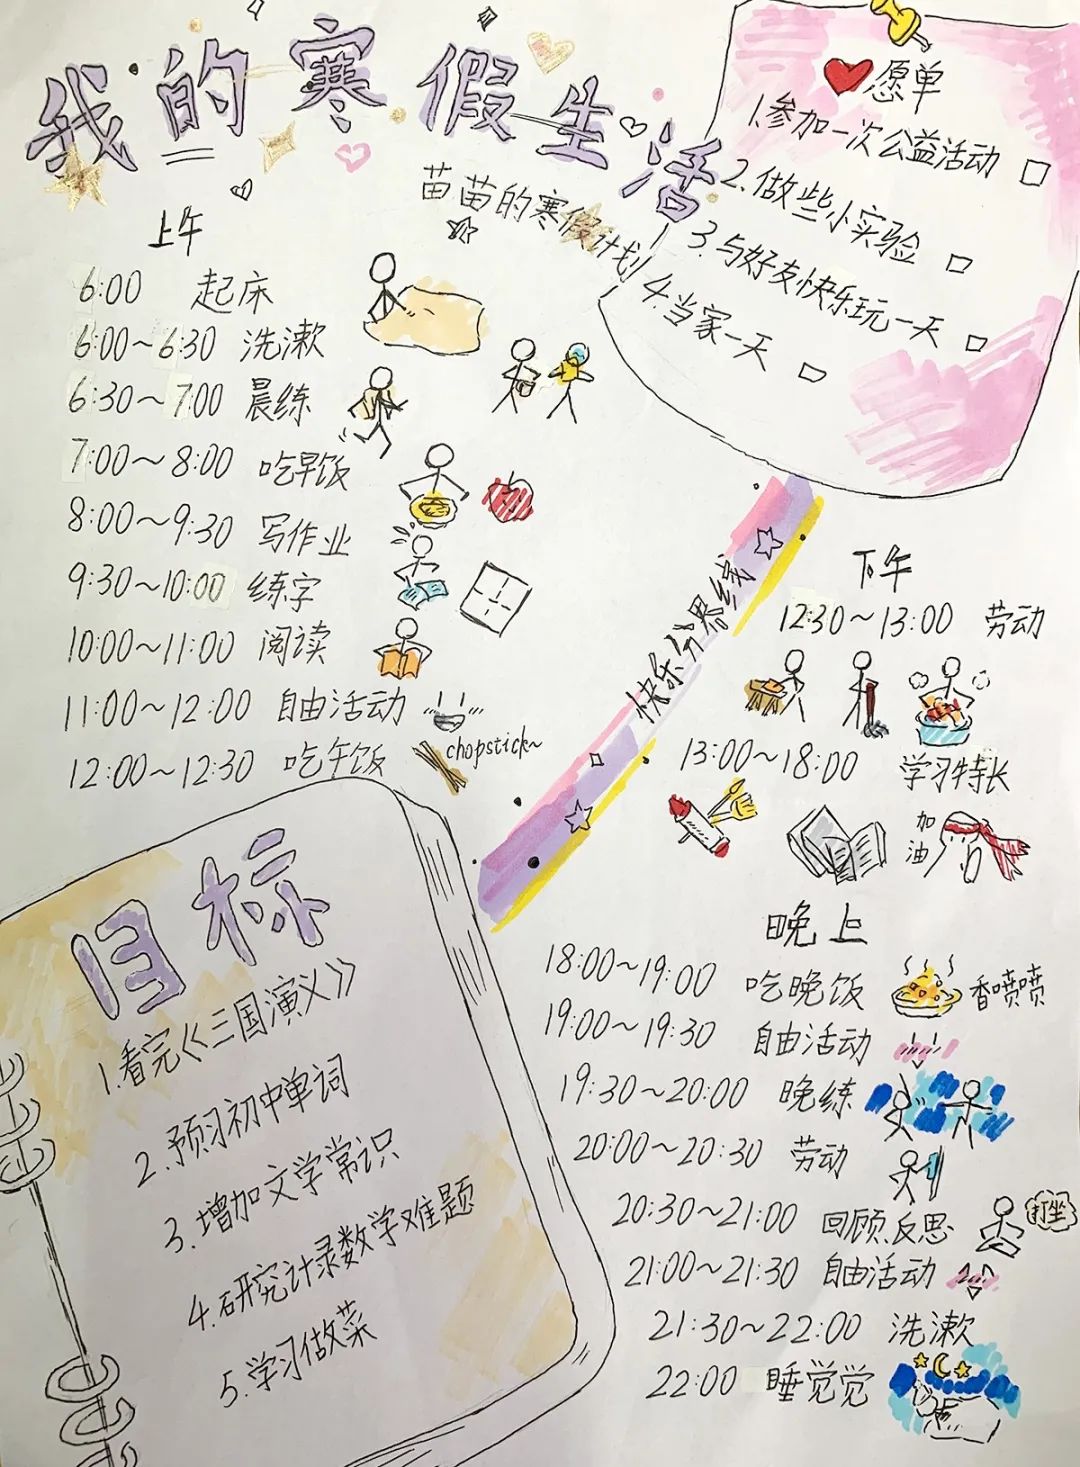 我的寒假生活
苗苗的寒假计划
愿单
1.参加一次公益活动 □
2.做些小实验 □
3.与好友快乐玩一天 □
4.当家一天 □
上午
6:00 起床
6:00~6:30 洗漱
6:30~7:00 晨练
7:00~8:00 吃早饭
8:00~9:30 写作业
9:30~10:00 练字
10:00~11:00 阅读
11:00~12:00 自由活动
12:00~12:30 吃午饭
chopstick~
快乐分界线
下午
12:30~13:00 劳动
13:00~18:00 学习特长
加油
晚上
18:00~19:00 吃晚饭
香喷喷
19:00~19:30 自由活动
19:30~20:00 晚练
20:00~20:30 劳动
20:30~21:00 回顾反思
打坐
21:00~21:30 自由活动
21:30~22:00 洗漱
22:00 睡觉觉
目标
1.看完《三国演义》
2.预习初中单词
3.增加文学常识
4.研究计录数学难题
5.学习做菜